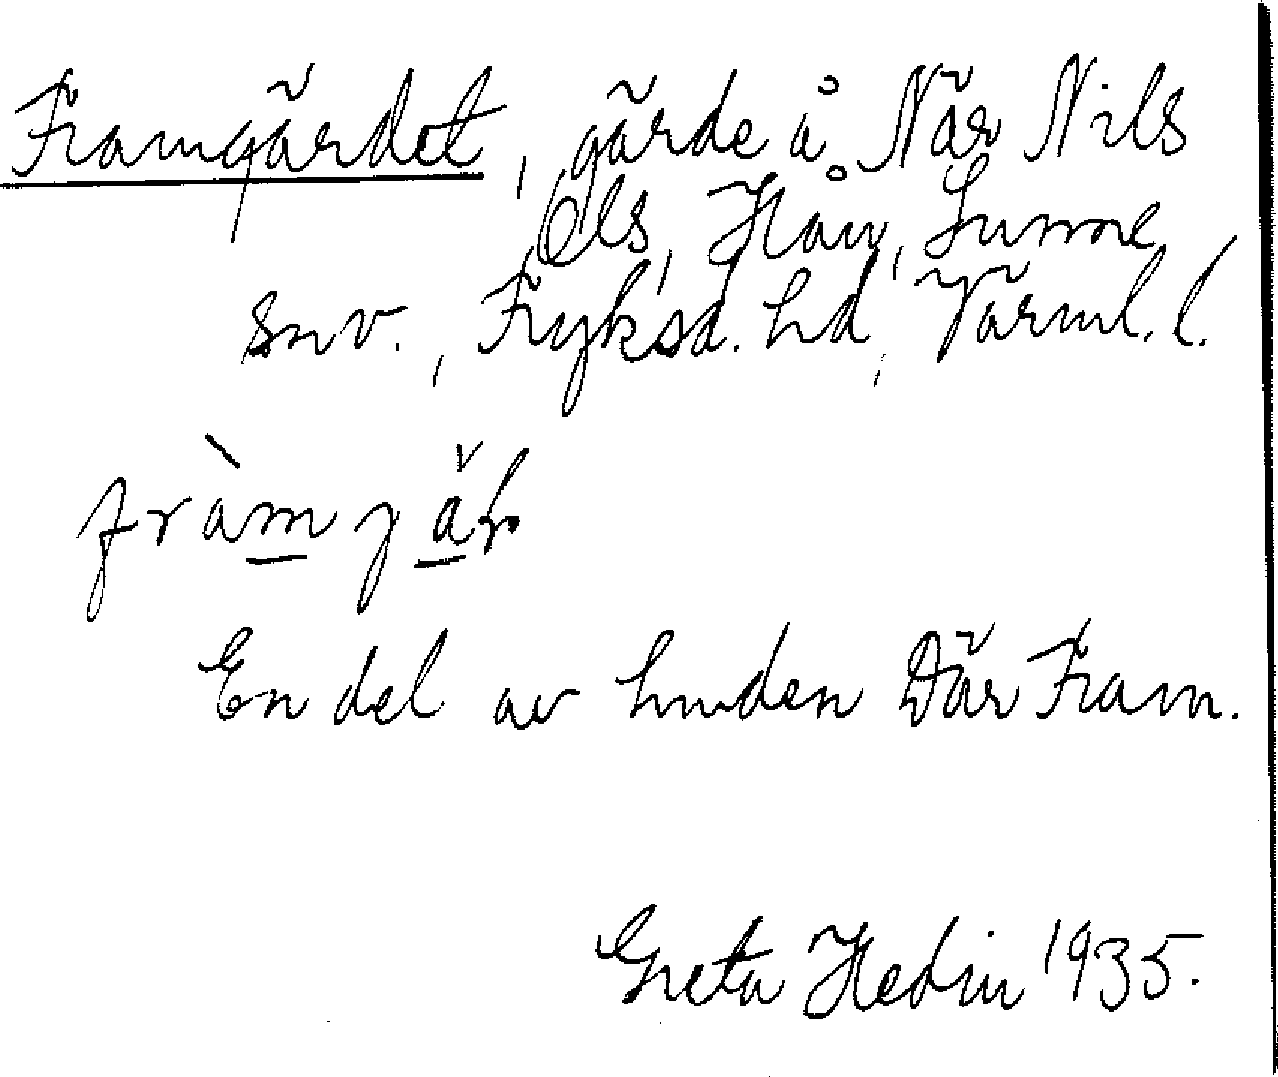 Framgärdet, gärde å När Nils
Ols, Hån, Sunne
snv., Fryksd. hd, Värml. l.
En del av lunden Där Fram.
Greta Hedin 1935.